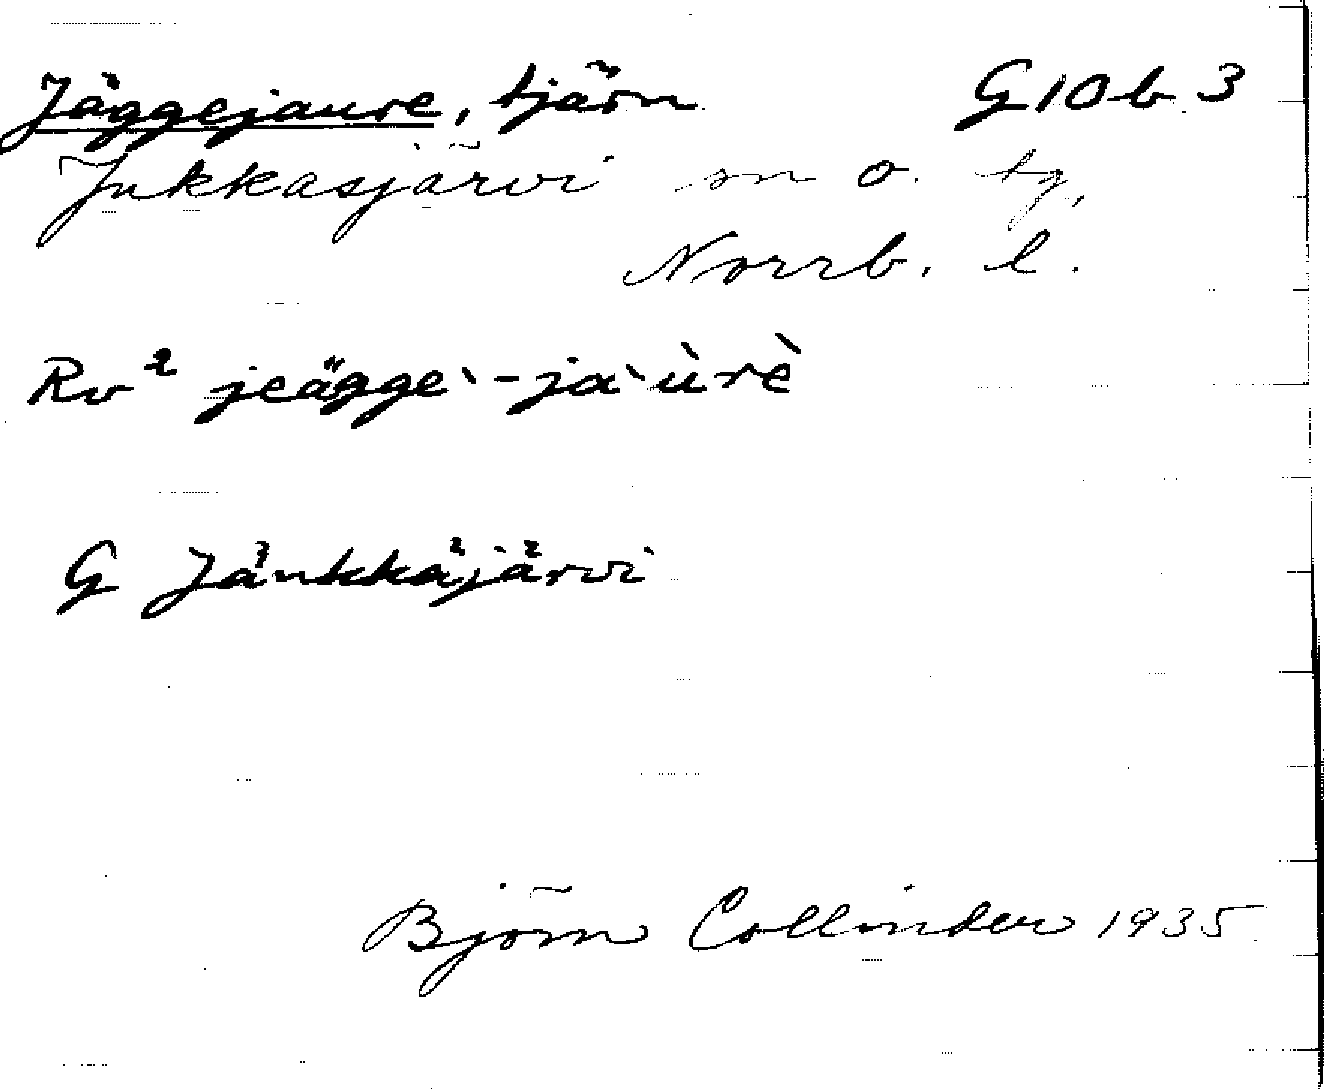 Jäggejaure, tjärn G10b3
Jukkasjärvi sn o. tg,
Norrb. l.
Rv² jeägge`-ja`ùrè
G Jänkkäjärvi
Björn Collinder 1935